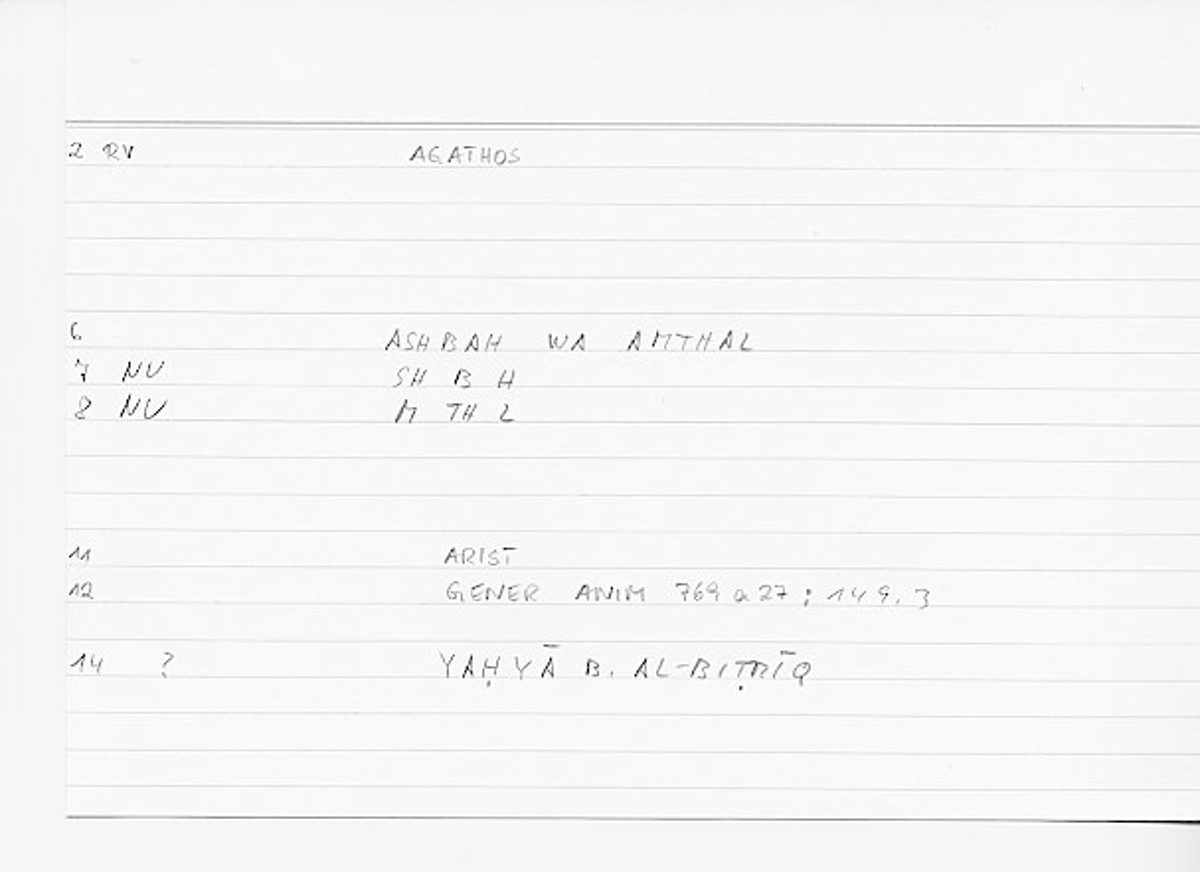 2 RV AGATHOS
6 ASHBAH WA AMTHAL
7 NV SH B H
8 NV M TH L
11 ARIST
12 GENER ANIM 769 a 27 ; 149.3
14 ? YAḤYĀ B. AL-BIṬRĪQ